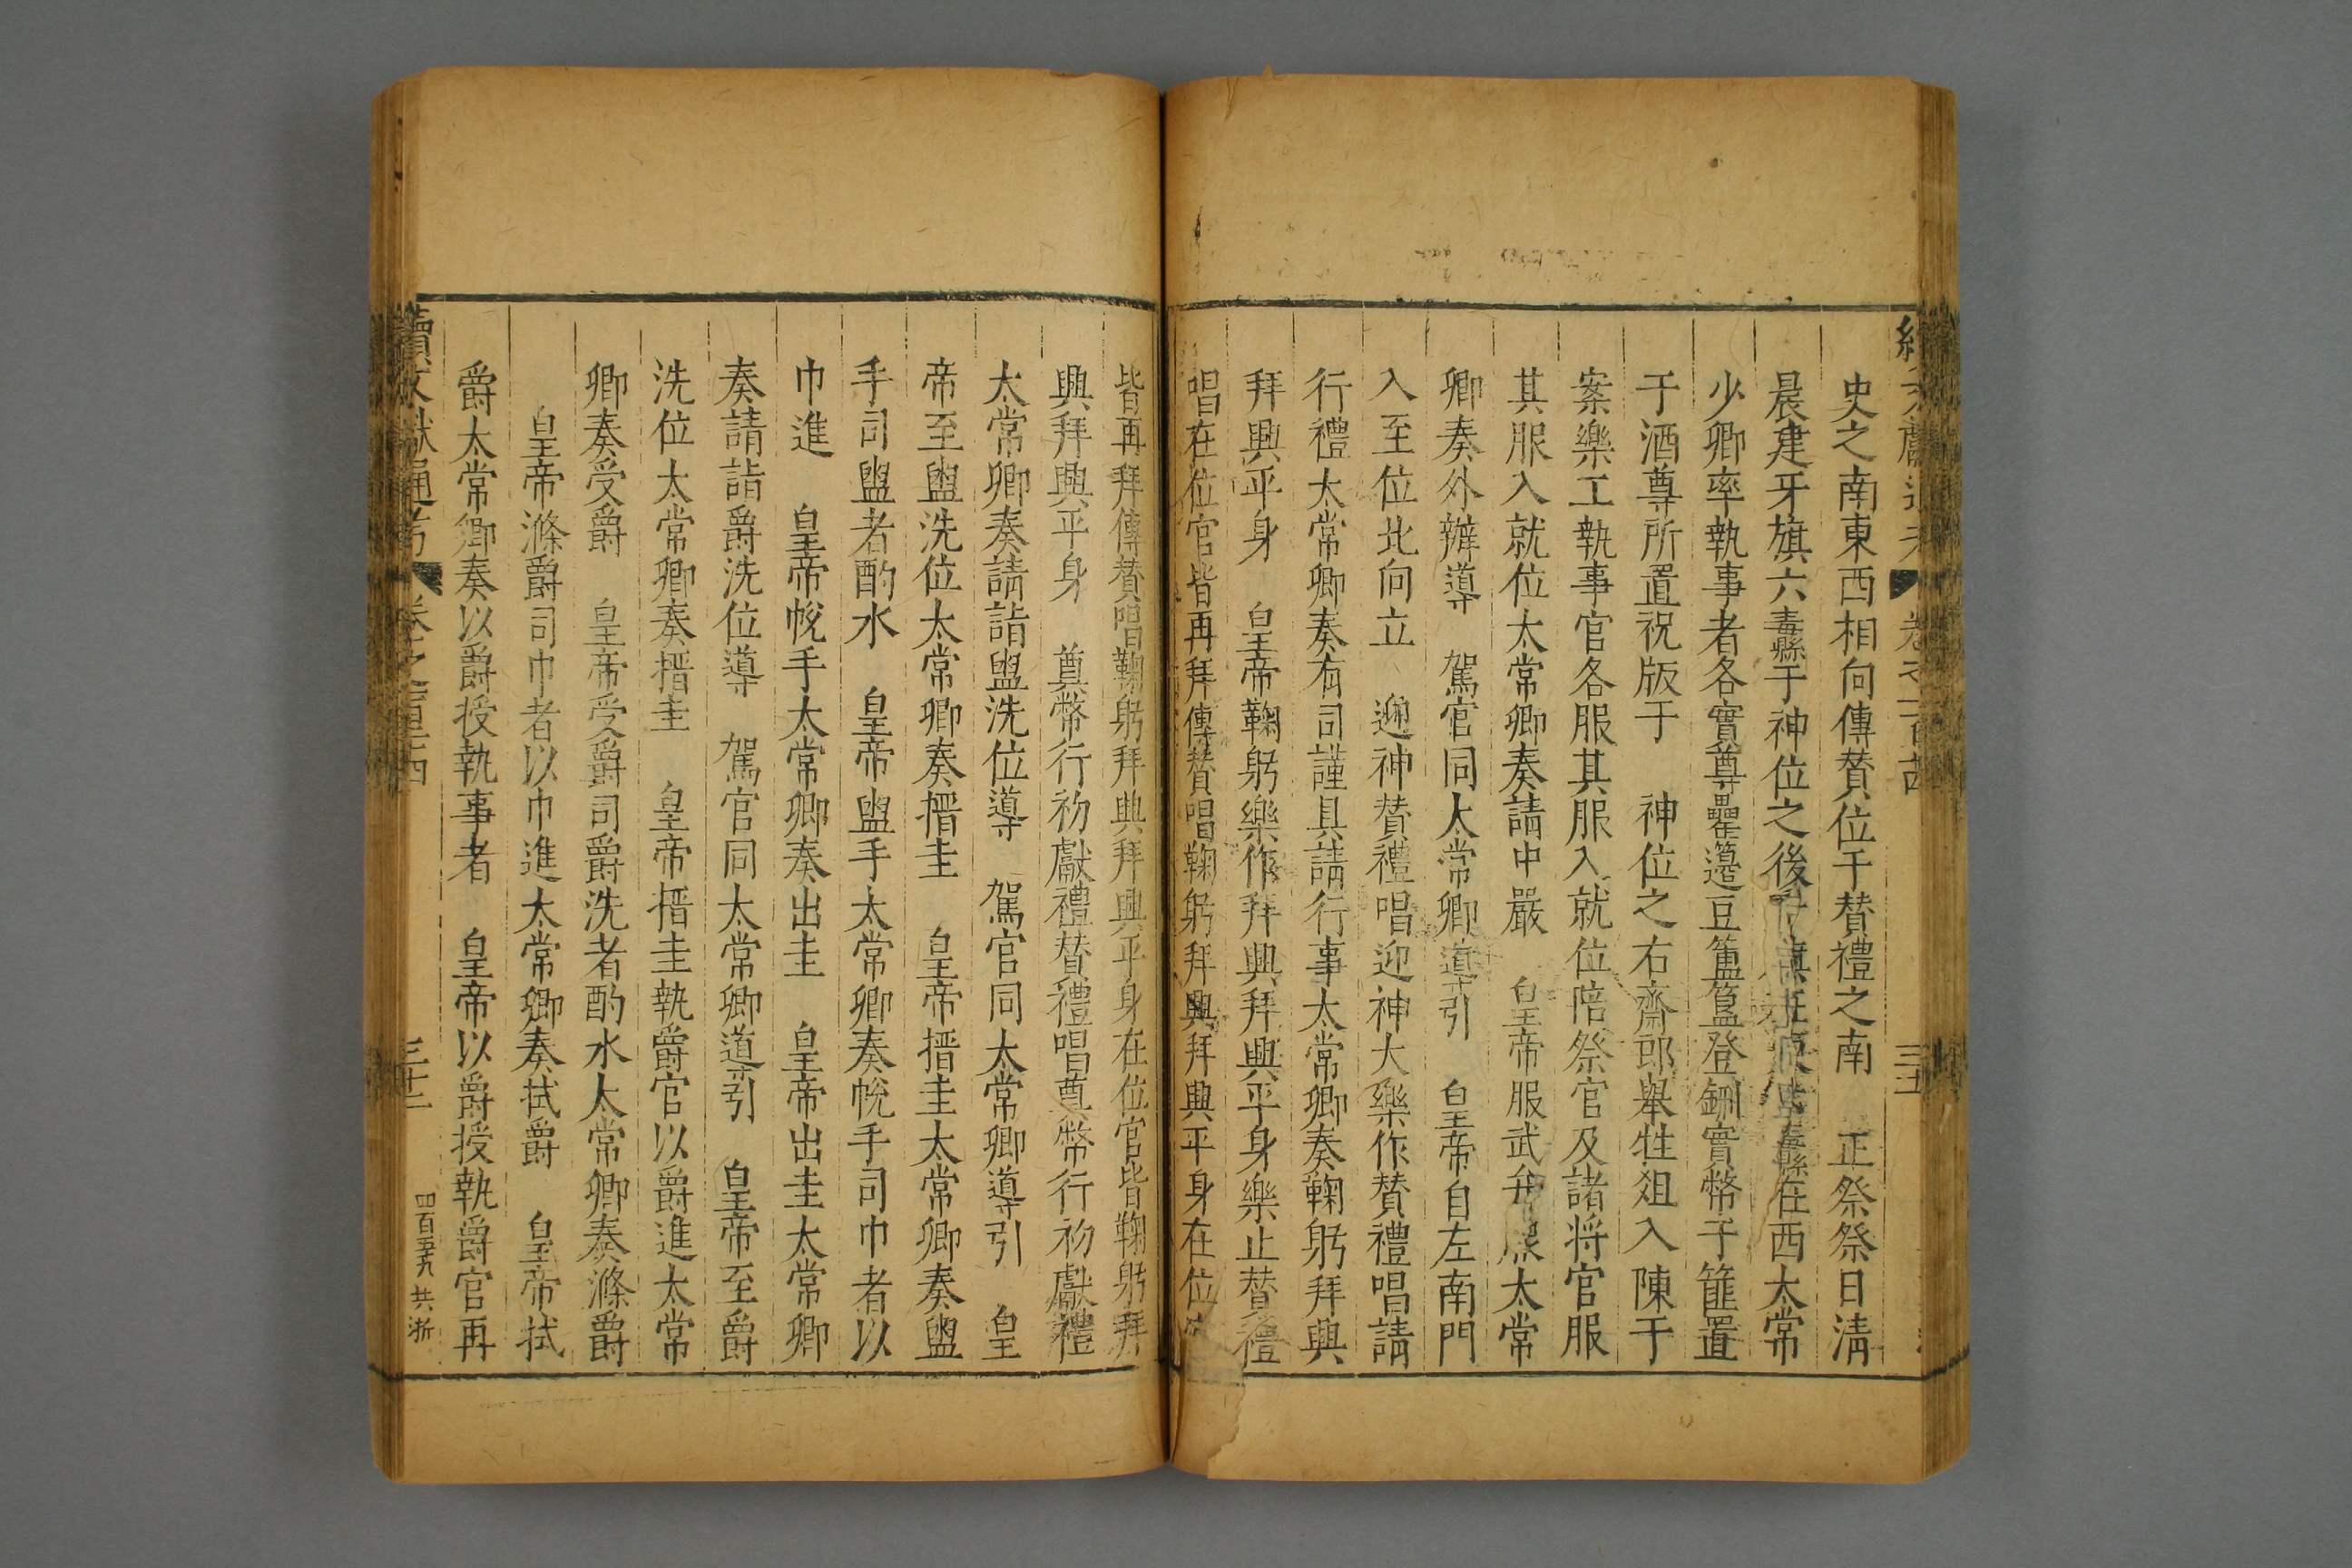 史之南東西相向傳賛位于賛禮之南　正祭祭日清
晨建牙旗六纛于神位之後在西太常
少卿率執事者各實尊罍籩豆簠簋登鉶實幣于篚置
于酒尊所置祝版于　神位之右齋郎舉牲俎入陳于
案樂工執事官各服其服入就位陪祭官及諸將官服
其服入就位太常卿奏請中嚴　皇帝服武弁太常
卿奏外辦導　駕官同太常卿導引　皇帝自左南門
入至位北向立　迎神賛禮唱迎神大樂作賛禮唱請
行禮太常卿奏有司謹具請行事太常卿奏鞠躬拜興
拜興平身　皇帝鞠躬樂作拜興拜興平身樂止賛禮
唱在位官皆再拜傳賛唱鞠躬拜興拜興平身在位
皆再拜傳賛唱鞠躬拜興拜興平身在位官皆鞠躬拜
興拜興平身　奠幣行初獻禮賛禮唱奠幣行初獻禮
太常卿奏請詣盥洗位導　駕官同太常卿導引　皇
帝至盥洗位太常卿奏搢圭　皇帝搢圭太常卿奏盥
手司盥者酌水　皇帝盥手太常卿奏帨手司巾者以
巾進　皇帝帨手太常卿奏出圭　皇帝出圭太常卿
奏請詣爵洗位導　駕官同太常卿導引　皇帝至爵
洗位太常卿奏搢圭　皇帝搢圭執爵官以爵進太常
卿奏受爵　皇帝受爵司爵洗者酌水太常卿奏滌爵
皇帝滌爵司巾者以巾進太常卿奏拭爵　皇帝拭
爵太常卿奏以爵授執事者　皇帝以爵授執爵官再
續文獻通考　卷之一百三十四　三十二　四百五九　共浙